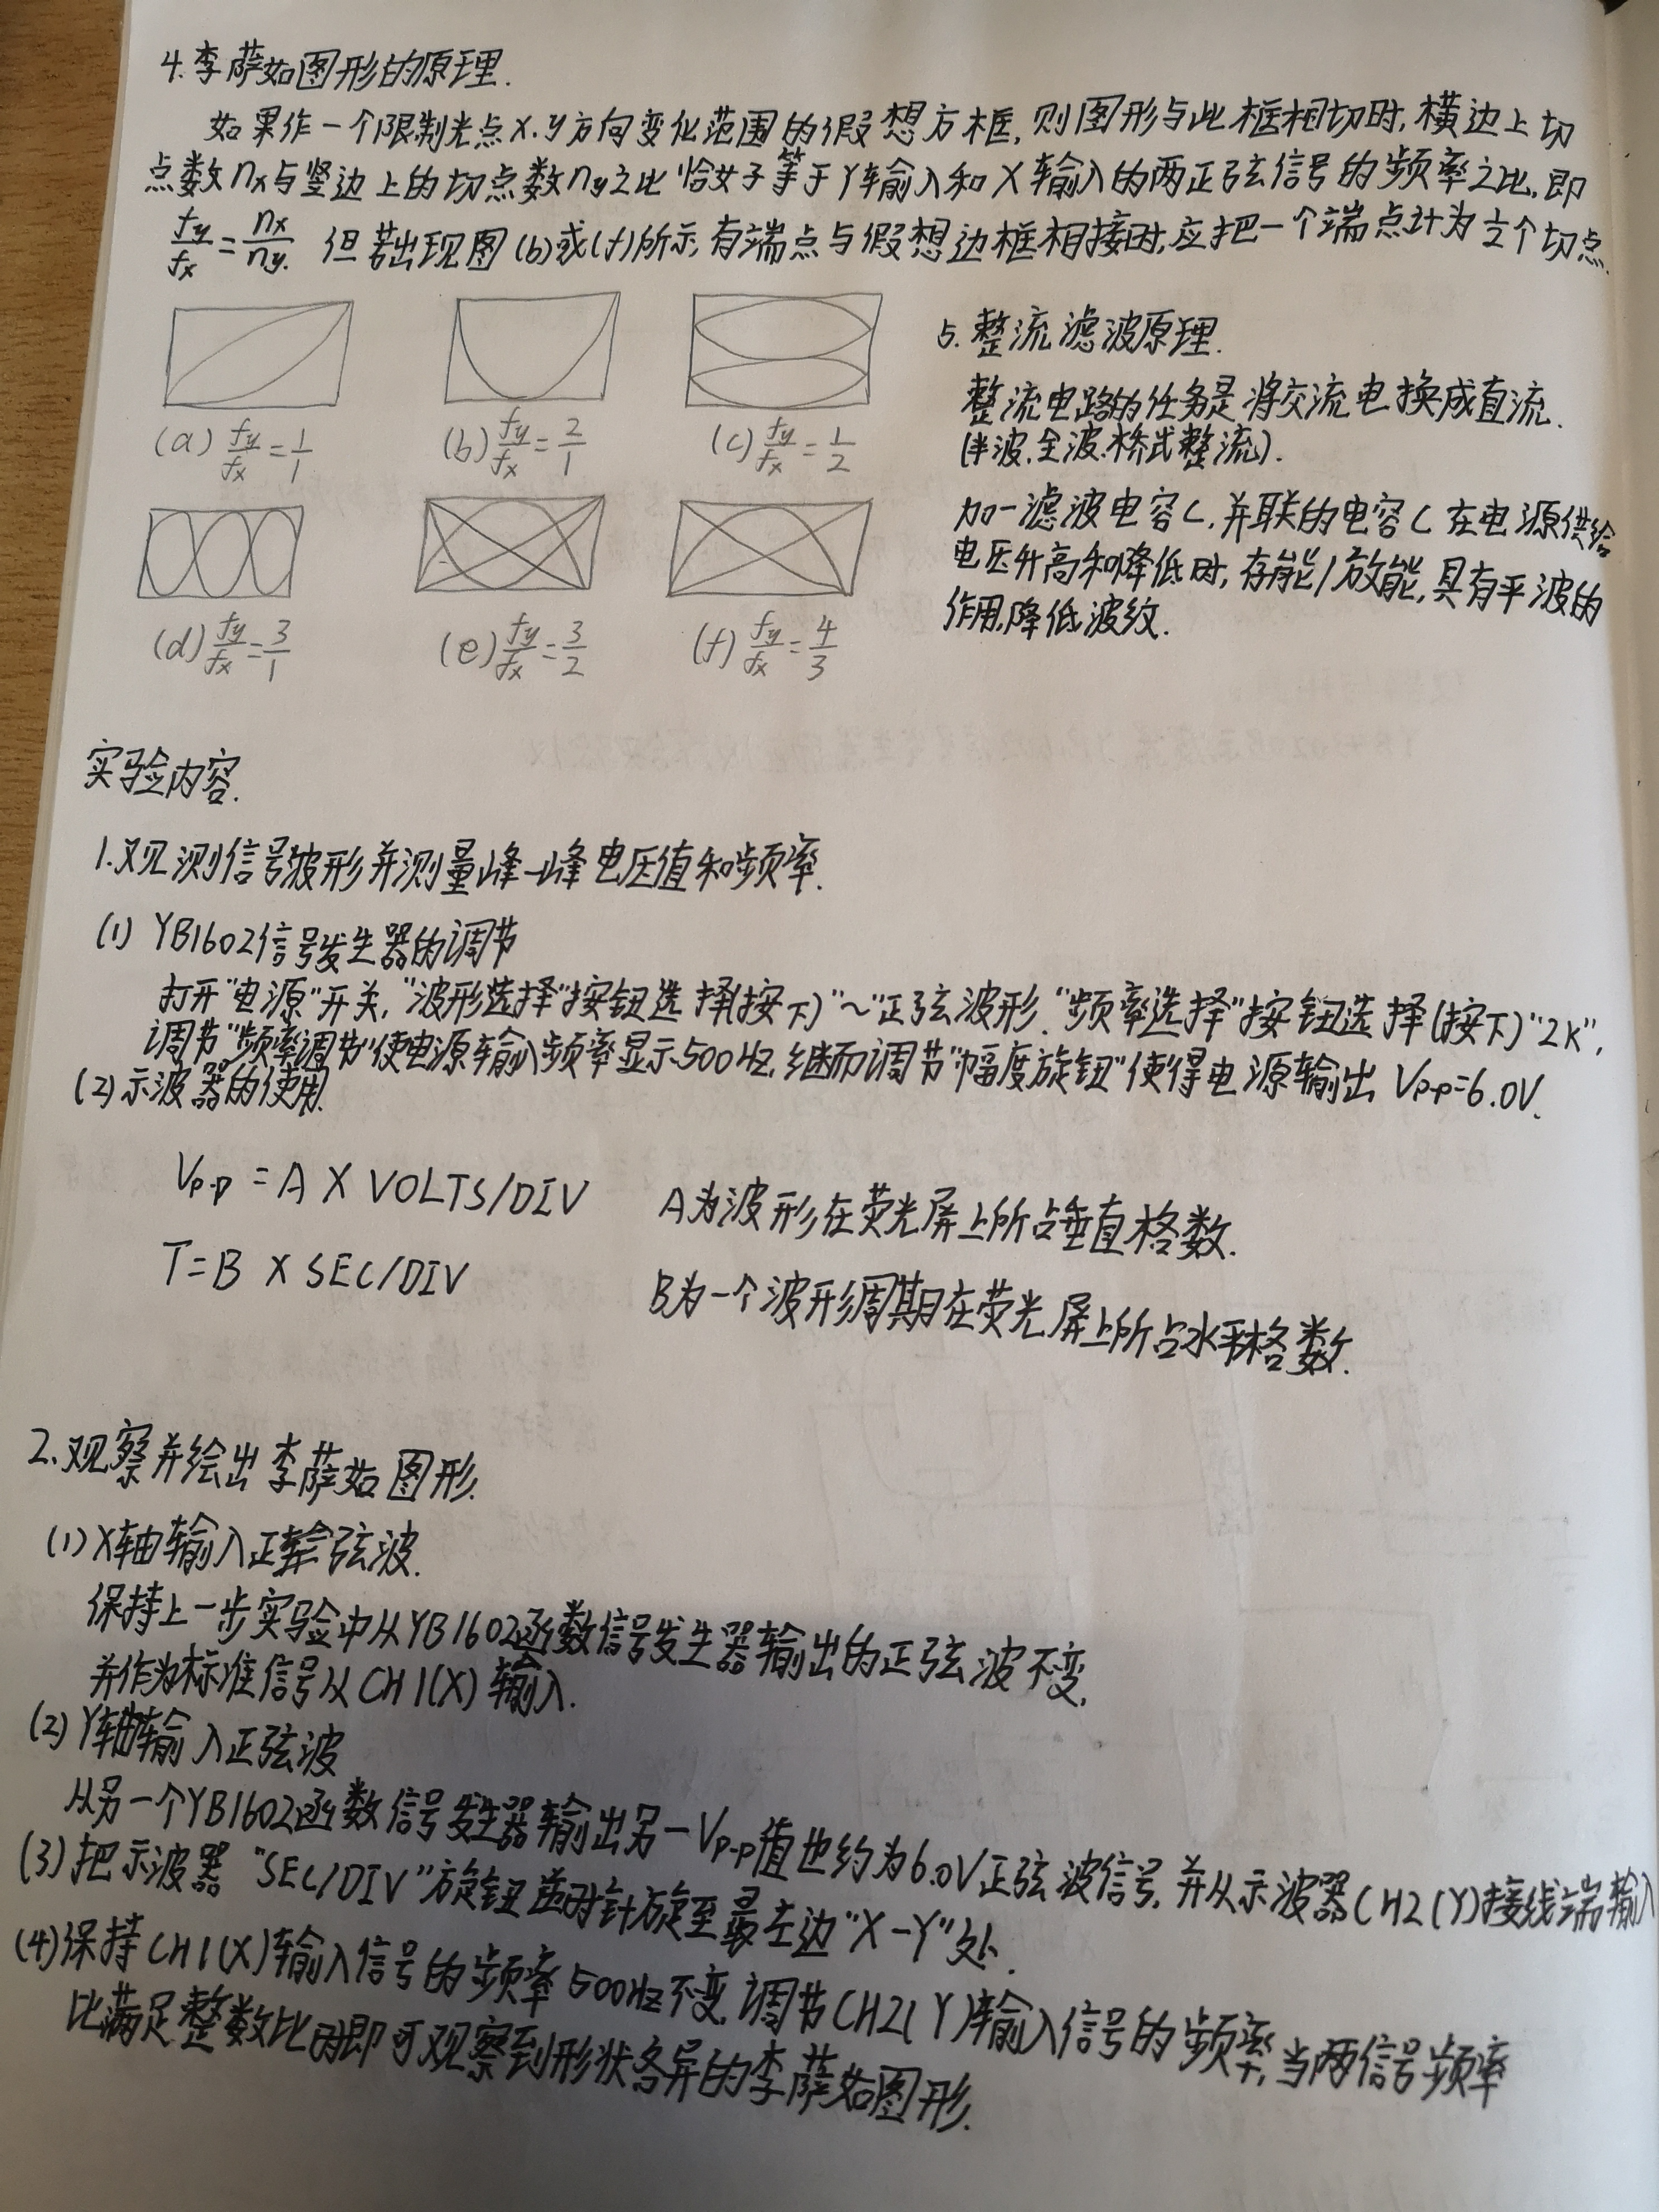 4.李萨如图形的原理.
如果作一个限制光点x.y方向变化范围的假想方框,则图形与此框相切时,横边上切
点数nx与竖边上的切点数ny之比恰好等于Y轴输入和X轴输入的两正弦信号的频率之比,即
fy/fx=nx/ny. 但若出现图(b)或(f)所示,有端点与假想边框相接时,应把一个端点计为½个切点.
(a) fy/fx=1/1
(b) fy/fx=2/1
(c) fy/fx=1/2
(d) fy/fx=3/1
(e) fy/fx=3/2
(f) fy/fx=4/3
5.整流滤波原理.
整流电路的任务是将交流电换成直流.
(半波.全波.桥式整流).
加一滤波电容C,并联的电容C在电源供给
电压升高和降低时,存能/放能,具有平波的
作用,降低波纹.
实验内容.
1.观测信号波形并测量峰-峰电压值和频率.
(1) YB1602信号发生器的调节
打开"电源"开关,"波形选择"按钮选择(按下)"~"正弦波形."频率选择"按钮选择(按下)"2K",
调节"频率调节"使电源输入频率显示500Hz,继而调节"幅度旋钮"使得电源输出 Vp-p=6.0V.
(2)示波器的使用.
Vp-p = A X VOLTS/DIV A为波形在荧光屏上所占垂直格数.
T=B X SEC/DIV B为一个波形周期在荧光屏上所占水平格数.
2.观察并绘出李萨如图形.
(1)X轴输入正弦波.
保持上一步实验中从YB1602函数信号发生器输出的正弦波不变,
并作为标准信号从CH1(X)输入.
(2)Y轴输入正弦波
从另一个YB1602函数信号发生器输出另一Vp-p值也约为6.0V正弦波信号,并从示波器CH2(Y)接线端输入
(3)把示波器"SEC/DIV"旋钮逆时针旋至最左边"X-Y"处.
(4)保持CH1(X)输入信号的频率500Hz不变,调节CH2(Y)输入信号的频率,当两信号频率
比满足整数比时即可观察到形状各异的李萨如图形.